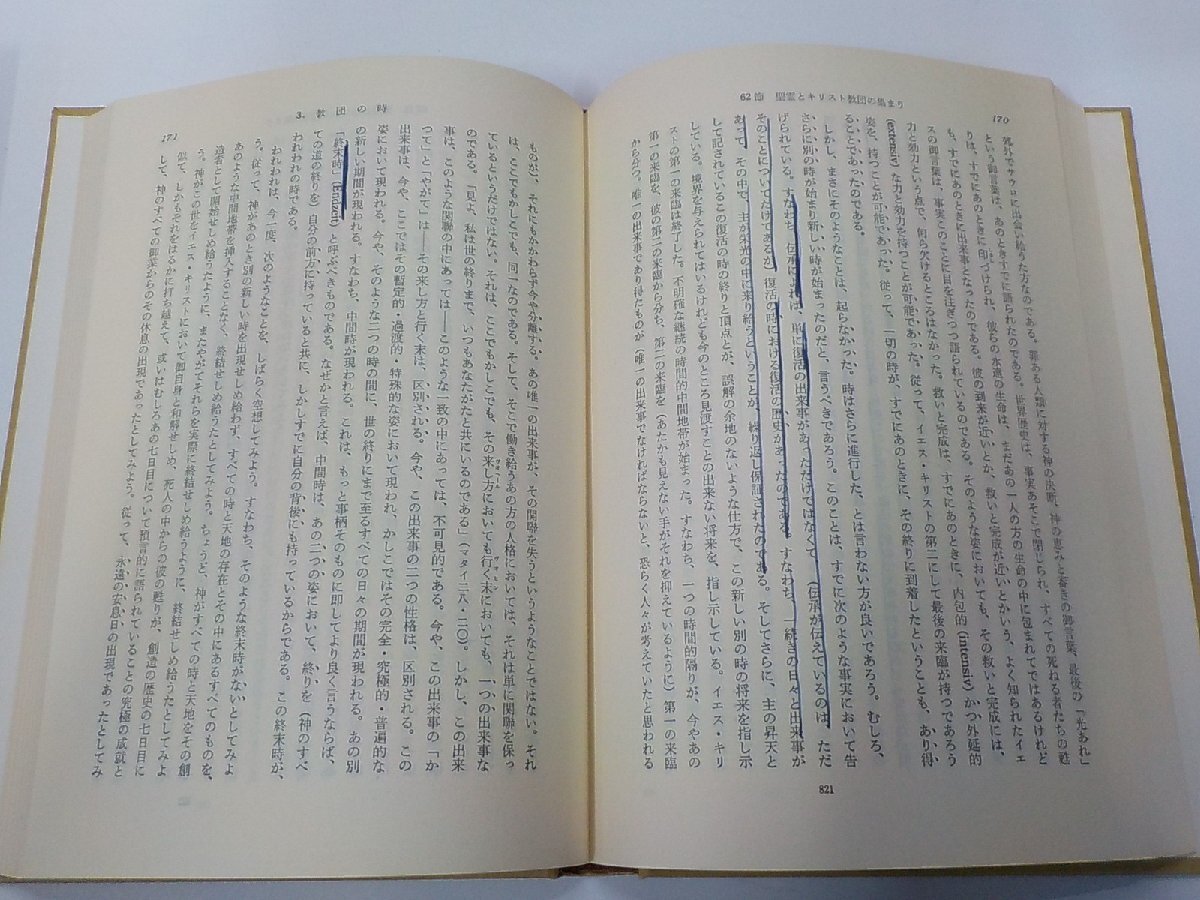 170
62節 聖霊とキリスト教団の集まり
死介でサウロに出会い給うた方なのである。罪ある人類に対する神の決断、神の恵みと裁きの御言葉、最後の「光あれ」
という御言葉は、あのときすでに語られたのである。世界歴史は、事実あそこで閉じられ、すべての死ねる者たちの甦
りは、すでにあのときに出来事となったのである。彼の到来が近いとか、救いと完成が近いとかいう、よく知られたイェ
も、すでにあのときに印づけられ、彼らの永遠の生命は、まだあの一人の方の生命の中に包まれてではあるけれど
スの御言葉は、事実このことに目を注ぎつつ語られているのである。そのような姿においても、その救いと完成には、
力と効力という点で、何ら欠けるところはなかった。救いと完成は、すでにあのときに、内包的 (intensiv) かつ外延的
(extensiv) な力と効力を持つことが可能であった。従って、イエス・キリストの第二にして最後の来臨が持つであろう
姿を、持つことが可能であった。従って、一切の時が、すでにあのときに、その終りに到着したということも、あり得
ることであったのである。
しかし、まさにそのようなことは、起らなかった。時はさらに進行した、とは言わない方が良いであろう。むしろ、
さらに別の時が始まり新しい時が始まったのだと、言うべきであろう。このことは、すでに次のような事実において告
げられている。すなわち、伝承によれば、単に復活の出来事があっただけではなくて (伝承が伝えているのは、ただ
そのことについてだけであるが) 復活の時における復活の歴史があったのである。すなわち、一続きの日々と出来事が
あって、その中で、主が栄光の中に来り給うということが、繰り返し保証されたのである。そしてさらに、主の昇天と
して記されているこの復活の時の終りと頂点とが、誤解の余地のないような仕方で、この新しい別の時の将来を指し示
している。境界を与えられてはいるけれども今のところ見渡すことの出来ない将来を、指し示している。イエス・キリ
ストの第一の来臨は終了した。不明確な継続の時間的中間地帯が始まった。すなわち、一つの時間的隔りが、今やあの
第一の来臨を、彼の第二の来臨から分ち、第二の来臨を (あたかも見えない手がそれを抑えているように) 第一の来臨
から分つ。唯一の出来事であり得たものが (唯一の出来事でなければならないと、恐らく人々が考えていたと思われる
821
3. 教団の時
171
ものが)、それにもかかわらず今や分離する。あの唯一の出来事が、その関聯を失うというようなことではない。それ
は、ここでもかしこでも、同一なのである。そして、そこで働き給うあの方の人格においては、それは単に関聯を保っ
ているというだけではない。それは、ここでもかしこでも、その来し方においても行く末においても、一つの出来事な
のである。「見よ、私は世の終りまで、いつもあなたがたと共にいるのである」(マタイ二八・二〇)。しかし、この出来
事は、このような関聯の中にあっては——このような一致の中にあっては、不可見的である。今や、この出来事の「か
つて」と「やがて」は——その来し方と行く末は、区別される。今や、この出来事の二つの性格は、区別される。この
出来事は、今や、ここではその暫定的・過渡的・特殊的な姿において現われ、かしこではその完全・究極的・普遍的な
姿において現われる。今や、そのような二つの時の間に、世の終りにまで至るすべての日々の期間が現われる。あの別
の新しい期間が現われる。すなわち、中間時が現われる。これは、もっと事柄そのものに即してより良く言うならば、
「終末時」(Endzeit) と呼ぶべきものである。なぜかと言えば、中間時は、あの二つの姿において、終りを (神のすべ
ての道の終りを) 自分の前方に持っていると共に、しかしすでに自分の背後にも持っているからである。この終末時が、
われわれの時である。
われわれは、今一度、次のようなことを、しばらく空想してみよう。すなわち、そのような終末時がないとしてみよ
う。従って、神があのとき別の新しい時を出現せしめ給わず、すべての時と天地の存在とその中にあるすべてのものを、
あのような中間地帯を挿入することなく、終結せしめ給うたとしてみよう。ちょうど、神がすべての時と天地をその創
造者として開始せしめ給うたように、またやがてそれらを実際に終結せしめ給うように、終結せしめ給うたとしてみよ
う。神がこの世をイエス・キリストにおいて御自身と和解せしめ、死人の中からの彼の甦りが、創造の歴史の七日目に
似て、しかもそれをはるかに打ち越えて、或いはむしろあの七日目について預言的に語られていることの究極の成就と
して、神のすべての御業からのその休息の出現であったとしてみよう。従って、永遠の安息日の出現であったとしてみ